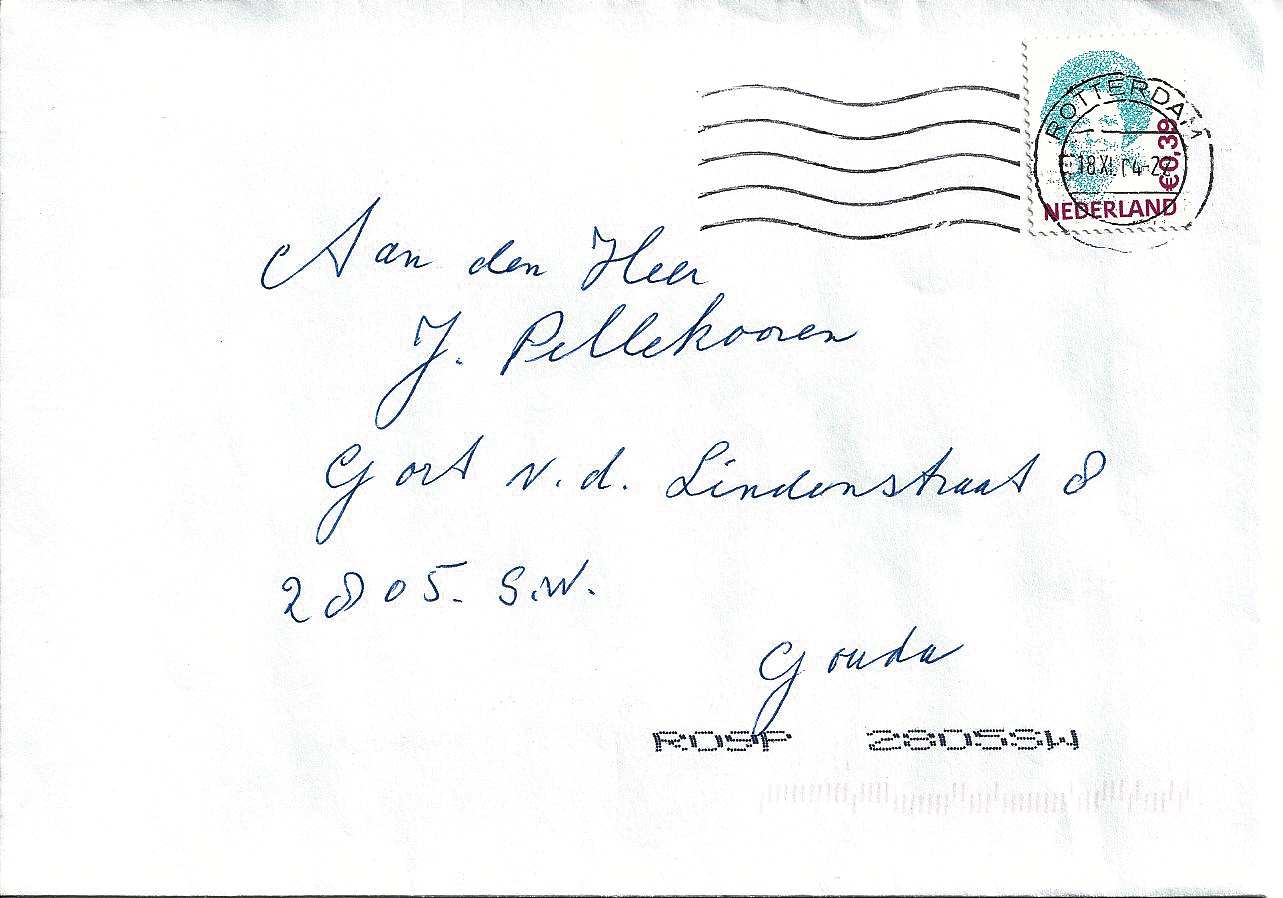 ROTTERDAM
18.XI.04-22
€0,39
NEDERLAND
Aan den Heer
J. Pellekooren
Gort v.d. Lindenstraat 8
2805. S.W.
Gouda
RO9P 2805SW